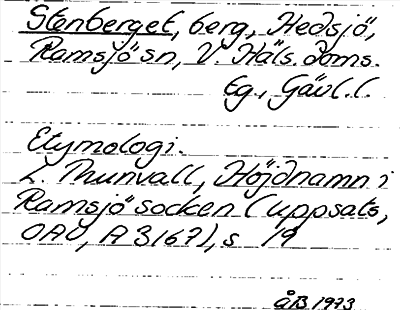 Stenberget, berg, Hedsjö,
Ramsjö sn, V. Häls. doms.
Eg., Gävl. l.
Etymologi.
L. Thunvall, Höjdnamn i
Ramsjö socken (uppsats,
OAU, A 3167), s 19
ÅB 1973